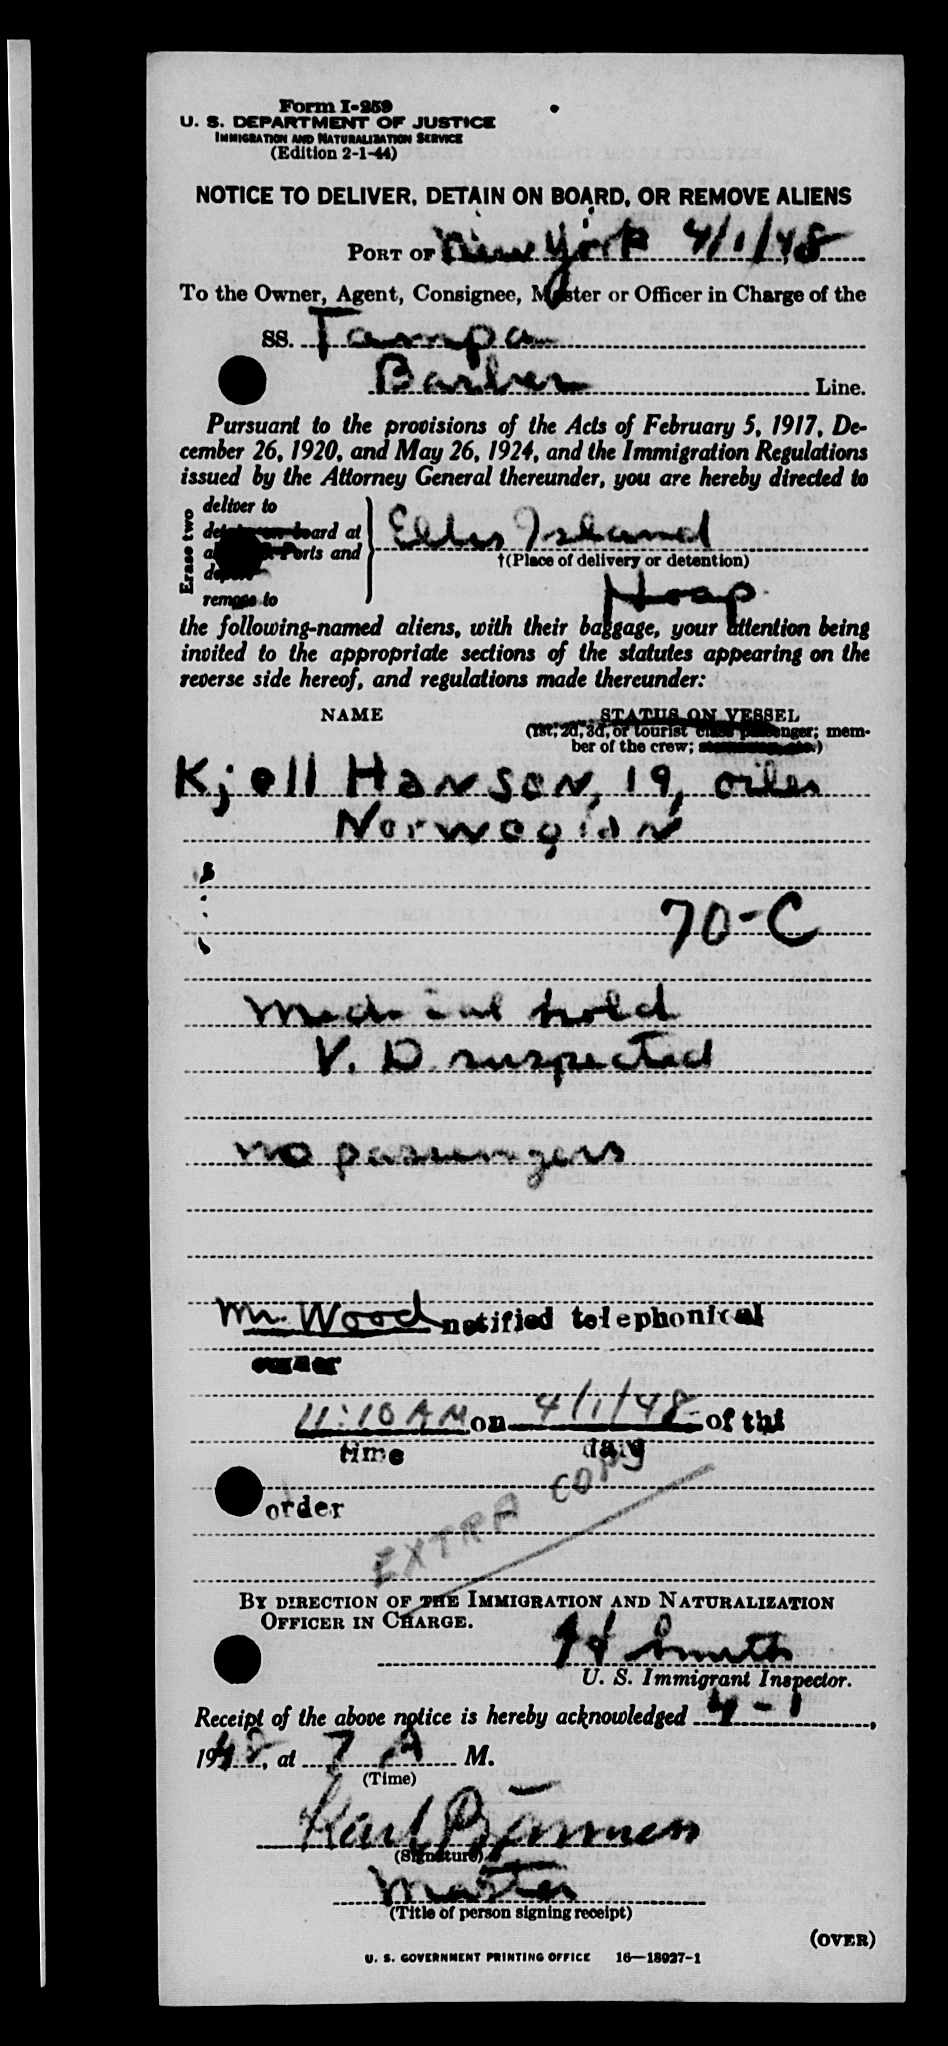 Form I-259
U. S. DEPARTMENT OF JUSTICE
IMMIGRATION AND NATURALIZATION SERVICE
(Edition 2-1-44)
NOTICE TO DELIVER, DETAIN ON BOARD, OR REMOVE ALIENS
PORT OF New York 4/1/48
To the Owner, Agent, Consignee, Master or Officer in Charge of the
SS. Tampa
Barber Line.
Pursuant to the provisions of the Acts of February 5, 1917, De-
cember 26, 1920, and May 26, 1924, and the Immigration Regulations
issued by the Attorney General thereunder, you are hereby directed to
Erase two
deliver to
detain on board at
Ports and
remove to
Ellis Island
†(Place of delivery or detention)
Hosp.
the following-named aliens, with their baggage, your attention being
invited to the appropriate sections of the statutes appearing on the
reverse side hereof, and regulations made thereunder:
NAME STATUS ON VESSEL
(1st, 2d, 3d, or tourist class passenger; mem-
ber of the crew;
Kjell Hanson, 19, oiler
Norwegian
70-C
Medical hold
V. D. suspected
no passengers
Mr. Wood notified telephonical
owner
11:10 AM on 4/1/48 of thi
time day
order
EXTRA COPY
BY DIRECTION OF THE IMMIGRATION AND NATURALIZATION
OFFICER IN CHARGE.
H Smith
U. S. Immigrant Inspector.
Receipt of the above notice is hereby acknowledged 4-1,
1948, at 7 A M.
(Time)
Karl
(Signature)
Master
(Title of person signing receipt)
(OVER)
U. S. GOVERNMENT PRINTING OFFICE 16—18927-1